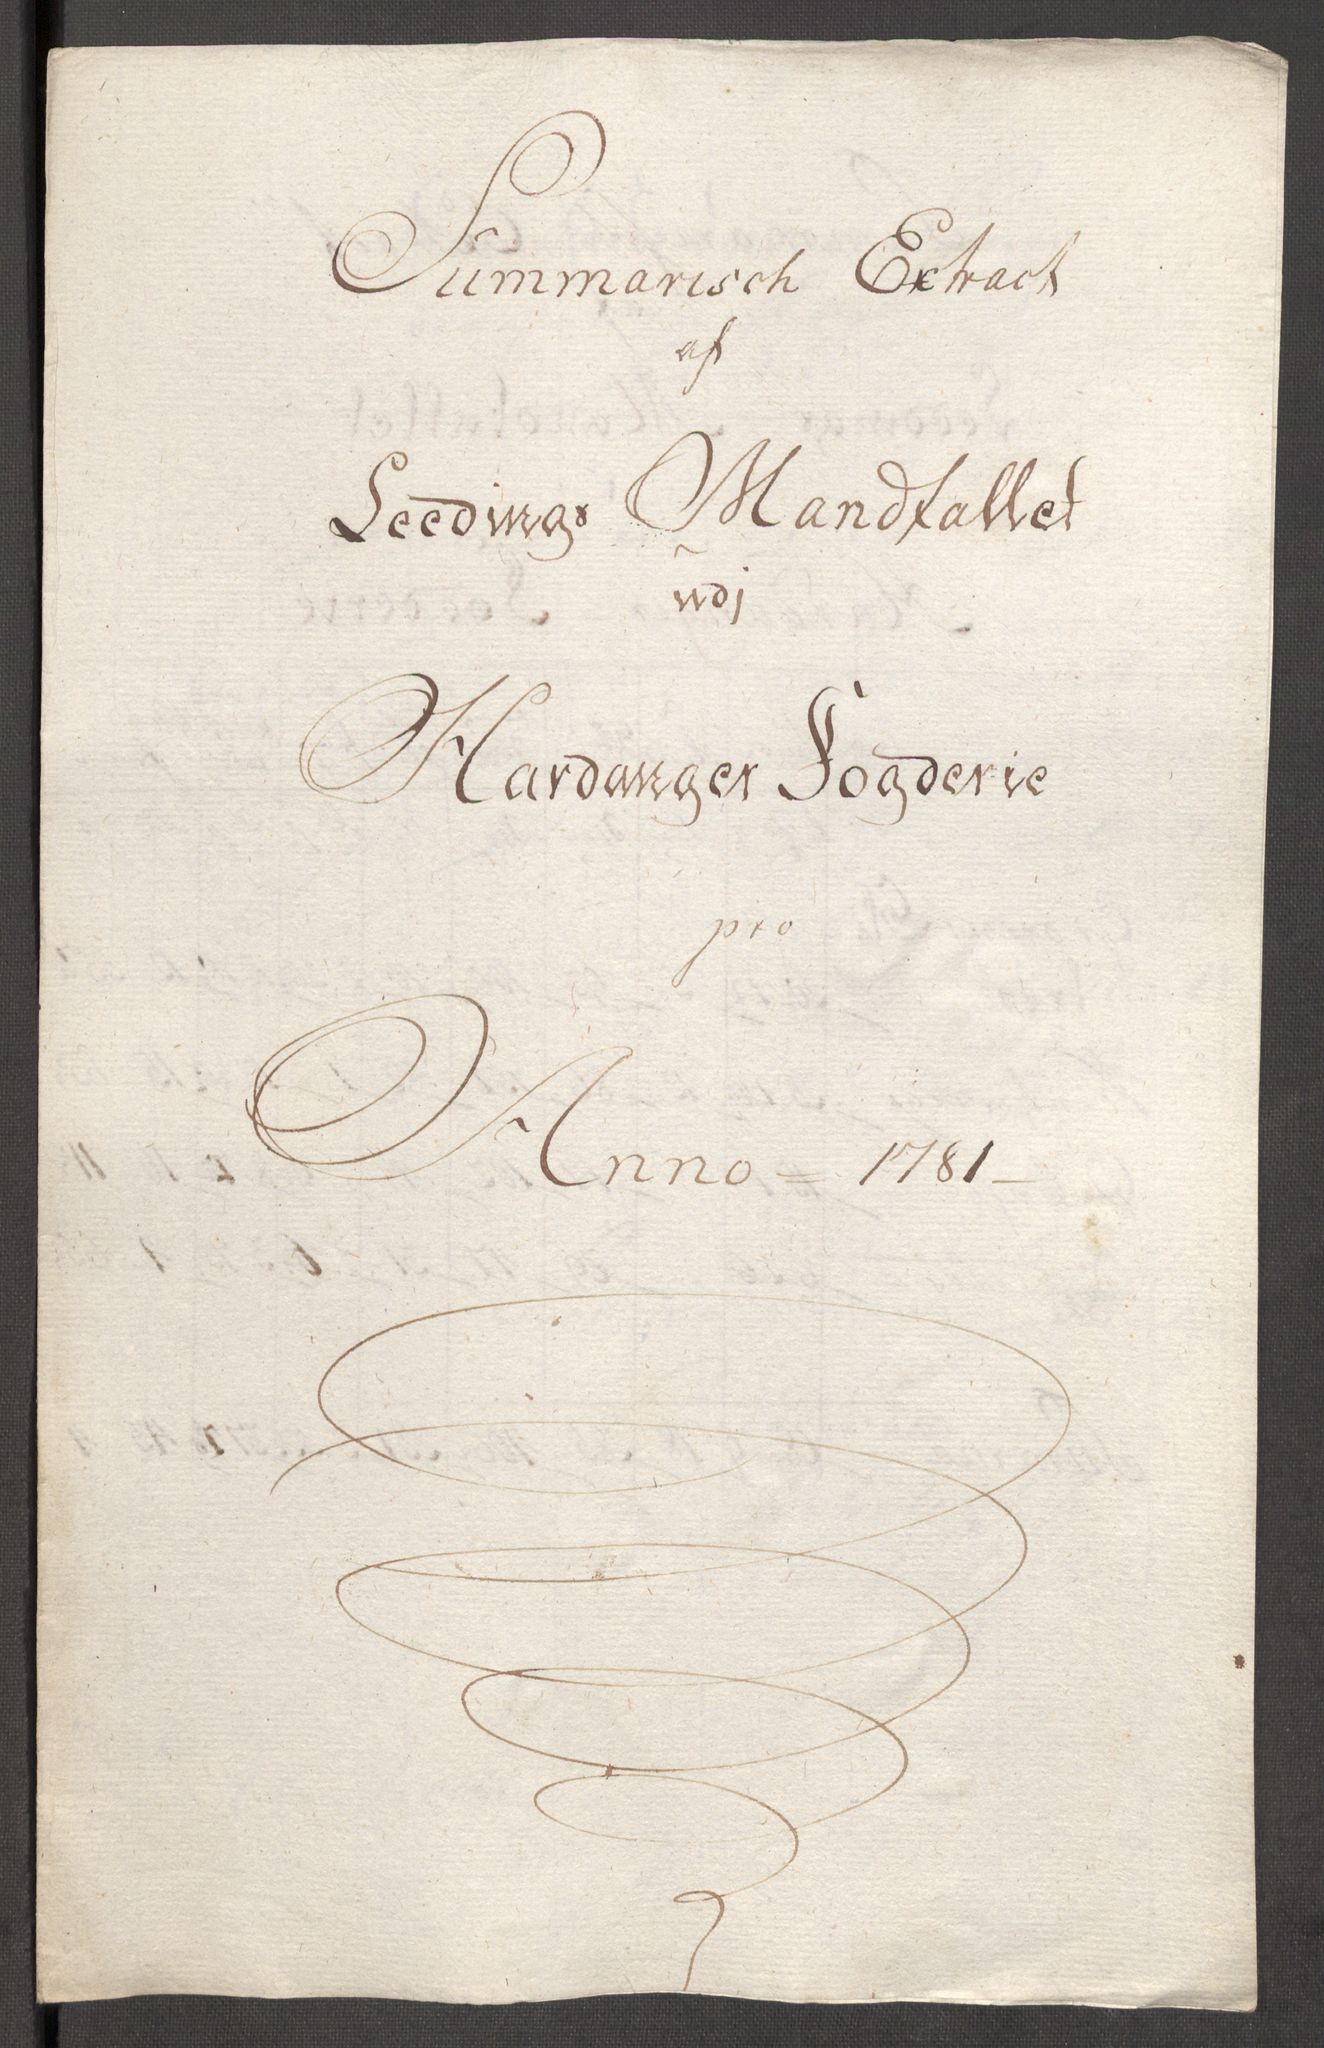 Summarisch Extract
af
Leedings Mandtallet
udi
Hardanger Fogderie
pro
Anno = 1781